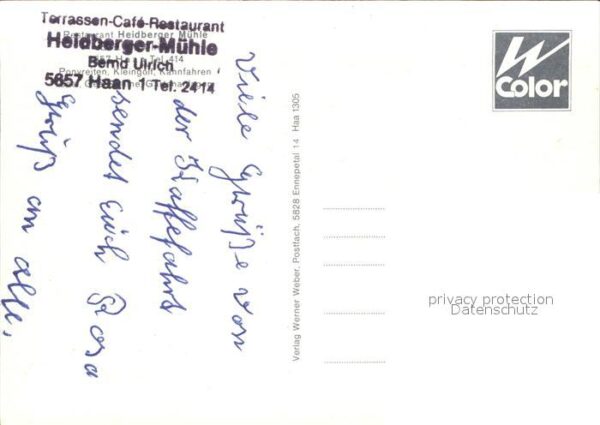 Terrassen-Café-Restaurant
Heidberger-Mühle
Bernd Ulrich
5657 Haan 1 Tel. 2414
Restaurant Heidberger Mühle
Tel 414
Ponyreiten, Kleingolf, Kahnfahren
Viele Grüße von
der Kaffefahrt
sendet Euch Rosa
Gruß an alle.
Verlag Werner Weber, Postfach, 5828 Ennepetal 14 Haa 1305
W
Color
privacy protection
Datenschutz